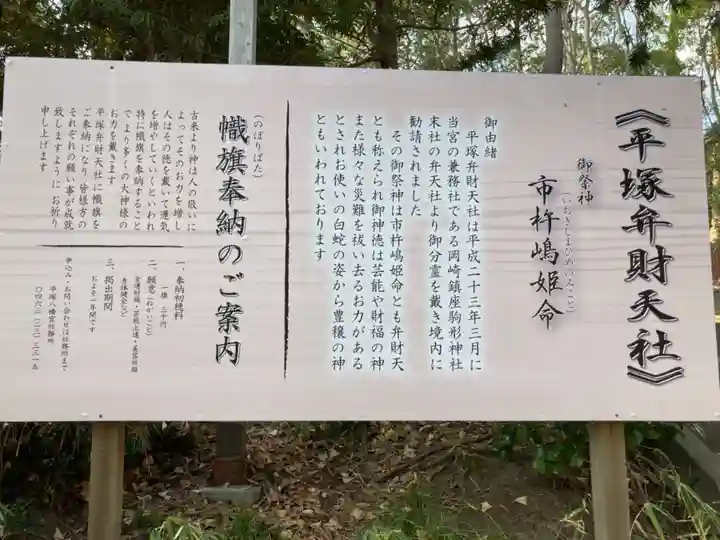 《平塚弁財天社》
御祭神
(いちきしまひめのみこと)
市杵嶋姫命
御由緒
平塚弁財天社は平成二十三年三月に
当宮の兼務社である岡崎鎮座駒形神社
末社の弁天社より御分霊を戴き境内に
勧請されました
その御祭神は市杵嶋姫命とも弁財天
とも称えられ御神徳は芸能や財福の神
また様々な災難を祓い去るお力がある
とされお使いの白蛇の姿から豊穣の神
ともいわれております
(のぼりばた)
幟旗奉納のご案内
古来より神は人の敬いに
よってそのお力を増し
人はその徳を戴いて運気
を増やしていくといわれ
特に幟旗を奉納すること
でより多くの大神様の
お力を戴きます
平塚弁財天社に幟旗を
ご奉納になり皆様方の
それぞれの願い事が成就
致しますようにお祈り
申し上げます
一、奉納初穂料
一旗 三千円
二、願意(ねがいごと)
金運財福・芸能上達・美容祈願
身体健全など
三、掲出期間
およそ一年間です
申込み・お問い合わせは社務所まで
平塚八幡宮社務所
〇四六三(二三)三三一五